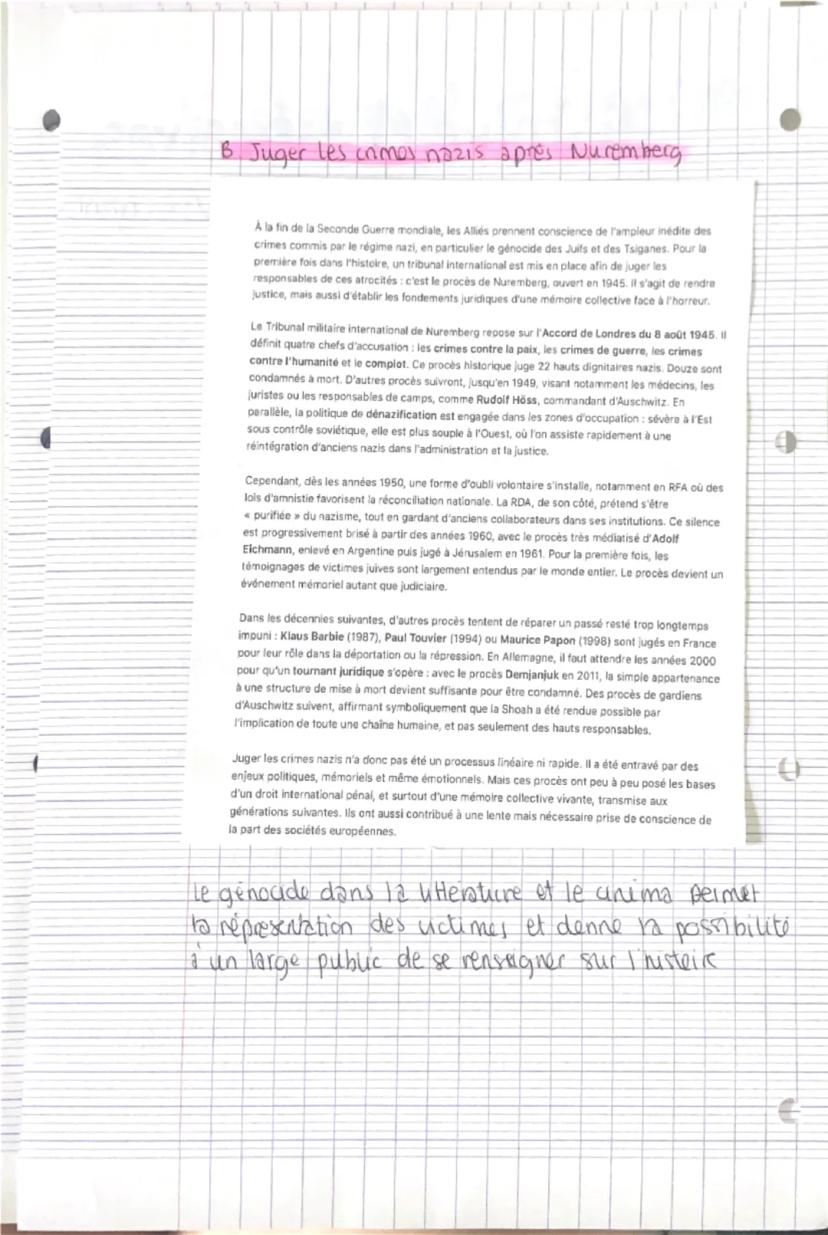 B. Juger les crimes nazis après Nuremberg
À la fin de la Seconde Guerre mondiale, les Alliés prennent conscience de l'ampleur inédite des
crimes commis par le régime nazi, en particulier le génocide des Juifs et des Tsiganes. Pour la
première fois dans l'histoire, un tribunal international est mis en place afin de juger les
responsables de ces atrocités : c'est le procès de Nuremberg, ouvert en 1945. Il s'agit de rendre
justice, mais aussi d'établir les fondements juridiques d'une mémoire collective face à l'horreur.
Le Tribunal militaire international de Nuremberg repose sur l'Accord de Londres du 8 août 1945. Il
définit quatre chefs d'accusation : les crimes contre la paix, les crimes de guerre, les crimes
contre l'humanité et le complot. Ce procès historique juge 22 hauts dignitaires nazis. Douze sont
condamnés à mort. D'autres procès suivront, jusqu'en 1949, visant notamment les médecins, les
juristes ou les responsables de camps, comme Rudolf Höss, commandant d'Auschwitz. En
parallèle, la politique de dénazification est engagée dans les zones d'occupation : sévère à l'Est
sous contrôle soviétique, elle est plus souple à l'Ouest, où l'on assiste rapidement à une
réintégration d'anciens nazis dans l'administration et la justice.
Cependant, dès les années 1950, une forme d'oubli volontaire s'installe, notamment en RFA où des
lois d'amnistie favorisent la réconciliation nationale. La RDA, de son côté, prétend s'être
« purifiée » du nazisme, tout en gardant d'anciens collaborateurs dans ses institutions. Ce silence
est progressivement brisé à partir des années 1960, avec le procès très médiatisé d'Adolf
Eichmann, enlevé en Argentine puis jugé à Jérusalem en 1961. Pour la première fois, les
témoignages de victimes juives sont largement entendus par le monde entier. Le procès devient un
événement mémoriel autant que judiciaire.
Dans les décennies suivantes, d'autres procès tentent de réparer un passé resté trop longtemps
impuni : Klaus Barbie (1987), Paul Touvier (1994) ou Maurice Papon (1998) sont jugés en France
pour leur rôle dans la déportation ou la répression. En Allemagne, il faut attendre les années 2000
pour qu'un tournant juridique s'opère : avec le procès Demjanjuk en 2011, la simple appartenance
à une structure de mise à mort devient suffisante pour être condamné. Des procès de gardiens
d'Auschwitz suivent, affirmant symboliquement que la Shoah a été rendue possible par
l'implication de toute une chaîne humaine, et pas seulement des hauts responsables.
Juger les crimes nazis n'a donc pas été un processus linéaire ni rapide. Il a été entravé par des
enjeux politiques, mémoriels et même émotionnels. Mais ces procès ont peu à peu posé les bases
d'un droit international pénal, et surtout d'une mémoire collective vivante, transmise aux
générations suivantes. Ils ont aussi contribué à une lente mais nécessaire prise de conscience de
la part des sociétés européennes.
Le génocide dans la littérature et le cinéma permet
la représentation des victimes et donne la possibilité
à un large public de se renseigner sur l'histoire